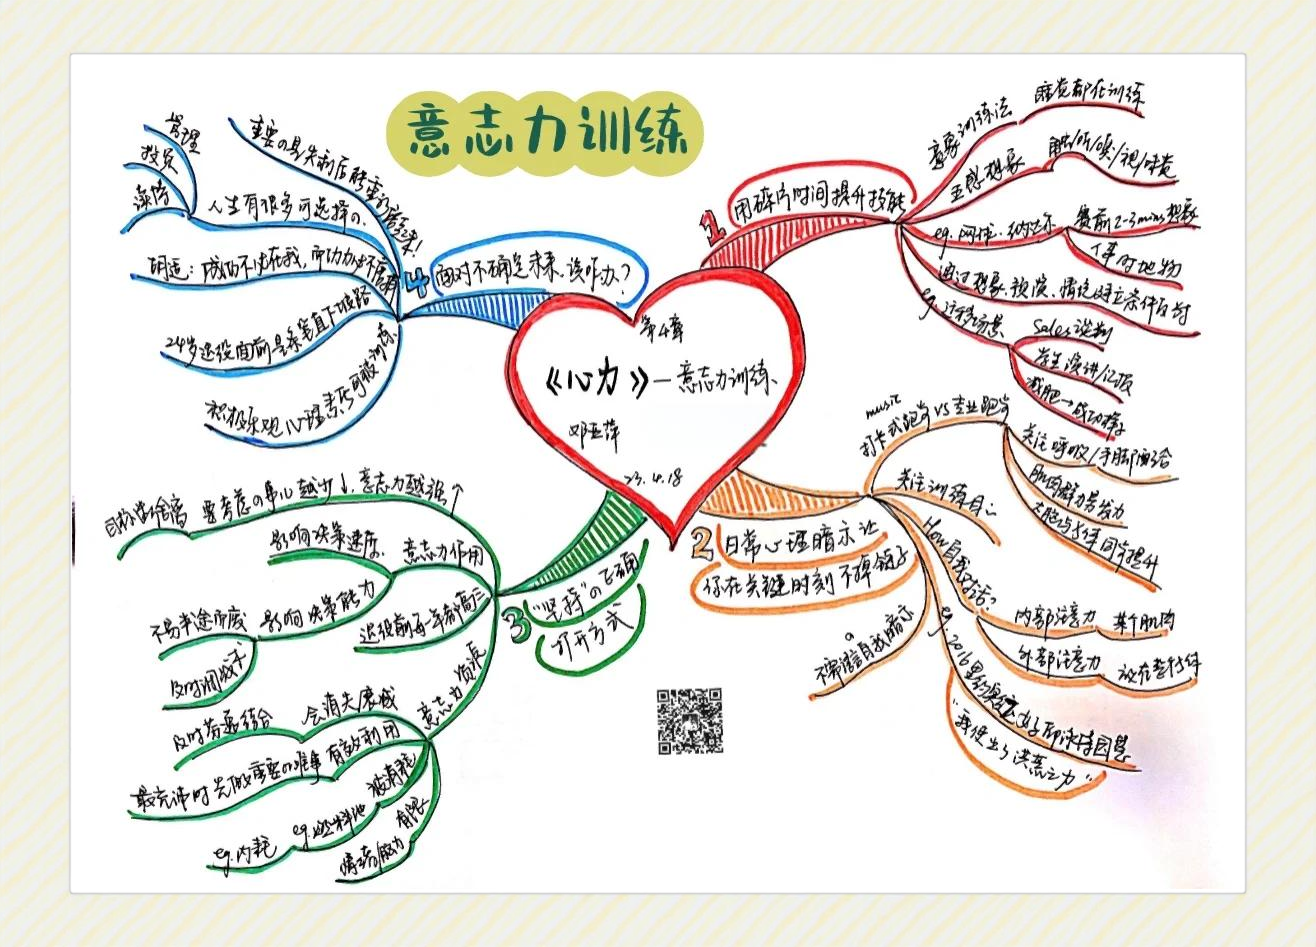 意志力训练
第4章
《心力》—意志力训练
邓亚萍
23.4.18
1
用碎片时间提升技能
意象训练法
睡觉都在训练
五感想象
触/听/嗅/视/味觉
eg. 网球·纳达尔
赛前2-3mins想象
人事时地物
通过想象、预演、情境建立条件反射
eg. 迁移场景
Sales谈判
发生演讲/汇报
减肥→成功样子
2
日常心理暗示让
你在关键时刻不掉链子
music
打卡式跑步VS专业跑步
关注呼吸/手脚配合
肌肉群力势发力
大脑与身体同步提升
关注训练目的
How自我对话?
内部注意力
某个肌肉
外部注意力
放在垫子身体
eg. 2016里约奥运女子郎决傅园慧
"我使出了洪荒之力"
不需语言自我暗示
3
"坚持"の正确
打开方式
要考虑の事儿越少↓，意志力越强↑
目标学会舍离
意志力作用
影响决策速度
影响决策能力
不易半途而废
及时调状态
退役前每一年都高三
意志力资源
会消失/衰减
及时劳逸结合
有效利用
最充沛时先做重要の难事
被消耗
eg. 燃料池
eg. 内耗
有限
情绪/脑力
4
面对不确定未来，该咋办?
重要の是失利后能重新崛起来!
人生有很多可选择の
管理
教英
读书
胡适：成功不必在我，而功力必不唐捐
24岁退役面前是条笔直下坡路
积极乐观心理素质可被训练